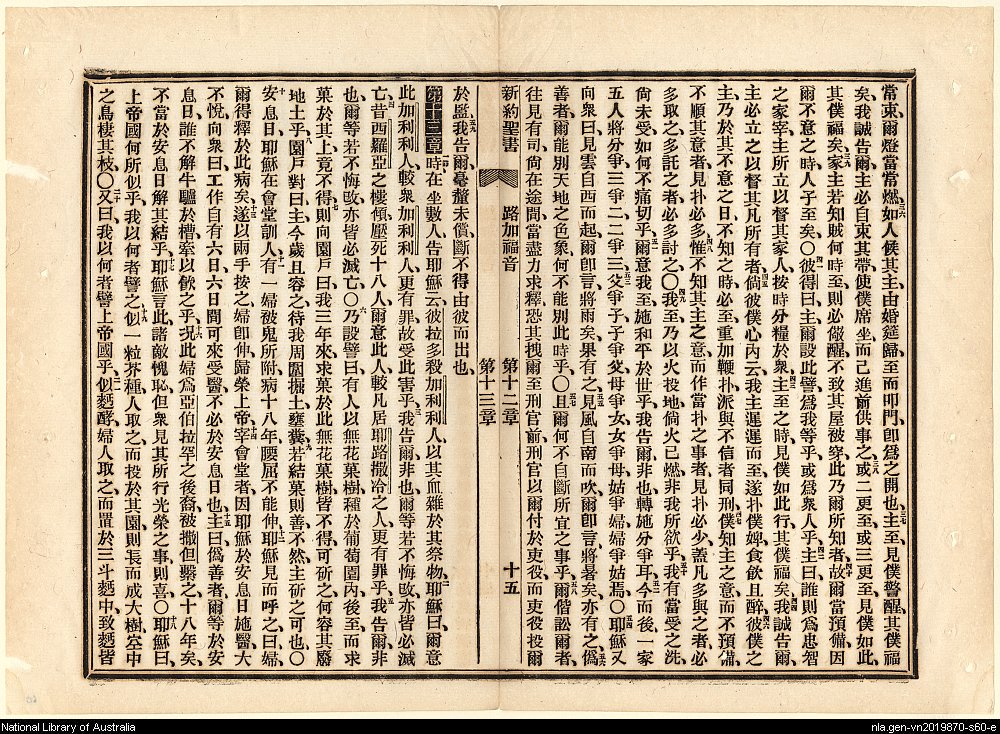 當束爾燈當常燃三六如人候其主由婚筵歸至而叩門卽爲之開也三七主至見僕警醒其僕福
矣我誠告爾主必自束其帶使僕席坐而己進前供事之三八或二更至或三更至見僕如此
其僕福矣三九家主若知賊何時至則必儆醒不致其屋被穿此乃爾所知者四十故爾當預備因
爾不意之時人子至矣○四一彼得曰主爾設此譬爲我等乎或爲衆人乎四二主曰誰則爲忠智
之家宰主所立以督其家人按時分糧於衆四三主至之時見僕如此行其僕福矣四四我誠告爾
主必立之以督其凡所有者四五倘彼僕心內云我主遲遲而至遂扑僕婢食飲且醉四六彼僕之
主乃於其不意之日不知之時必至重加鞭扑派與不信者同刑四七僕知主之意而不預備
不順其意者見扑必多四八惟不知其主之意而作當扑之事者見扑必少蓋凡多與之者必
多取之多託之者必多討之○四九我至乃以火投地倘火已燃非我所欲乎五十我有當受之洗
尙未受如何不痛切乎五一爾意我至施和平於世乎我告爾非也轉施分爭耳五二今而後一家
五人將分爭三爭二二爭三五三父爭子子爭父母爭女女爭母姑爭婦婦爭姑焉○五四耶穌又
向衆曰見雲自西而起爾卽言將雨矣果有之五五見風自南而吹爾卽言將暑矣亦有之五六僞
善者爾能別天地之色象何不能別此時乎○五七且爾何不自斷所宜之事乎五八爾偕訟爾者
往見有司尙在途間當盡力求釋恐其拽爾至刑官前刑官以爾付於吏役而吏役投爾
新約聖書 路加福音 第十二章 第十三章 十五
於監五九我告爾毫釐未償斷不得由彼而出也
第十三章 時在坐數人告耶穌云彼拉多殺加利利人以其血雜於其祭物二耶穌曰爾意
此加利利人較衆加利利人更有罪故受此害乎三我告爾非也爾等若不悔改亦皆必滅
亡四昔西羅亞之樓傾壓死十八人爾意此人較凡居耶路撒冷之人更有罪乎五我告爾非
也爾等若不悔改亦皆必滅亡○六乃設譬曰有人以無花菓樹種於葡萄園內後至而求
菓於其上竟不得七則向園戶曰我三年來求菓於此無花菓樹皆不得可斫之何容其廢
地土乎八園戶對曰主今歲且容之待我周圍掘土壅糞九若結菓則善不然主斫之可也○
十安息日耶穌在會堂訓人十一有一婦被鬼所附病十八年腰屈不能伸十二耶穌見而呼之曰婦
爾得釋於此病矣十三遂以兩手按之婦卽伸歸榮上帝十四宰會堂者因耶穌於安息日施醫大
不悅向衆曰工作自有六日六日間可來受醫不必於安息日也十五主曰僞善者爾等於安
息日誰不解牛驢於槽牽以飮之乎十六况此婦爲亞伯拉罕之後裔被撒但繫之十八年矣
不當於安息日解其結乎十七耶穌言此諸敵愧恥但衆見其所行光榮之事則喜○十八耶穌曰
上帝國何所似乎我以何者譬之十九似一粒芥種人取之而投於其園則長而成大樹空中
之鳥棲其枝○二十又曰我以何者譬上帝國乎二一似麪酵婦人取之而置於三斗麪中致麪皆
National Library of Australia
nla.gen-vn2019870-s60-e